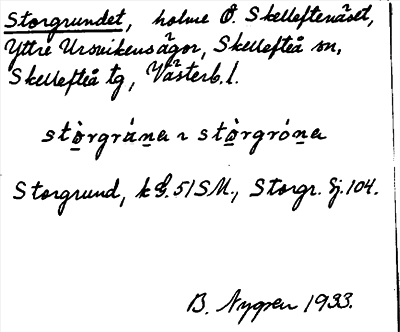 Storgrundet, holme Ö. Skelleftenäset,
Yttre Ursvikens ägor, Skellefteå sn,
Skellefteå tg, Västerb. l.
stòrgrúna ~ stòrgróna
Storgrund, k G. 51 SM., Storgr. Sj. 104.
B. Nygren 1933.